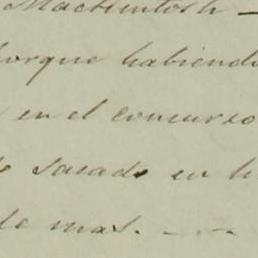 MacKintosh —
porque habiendo
en el concurso
sacado en
de mas. — . —